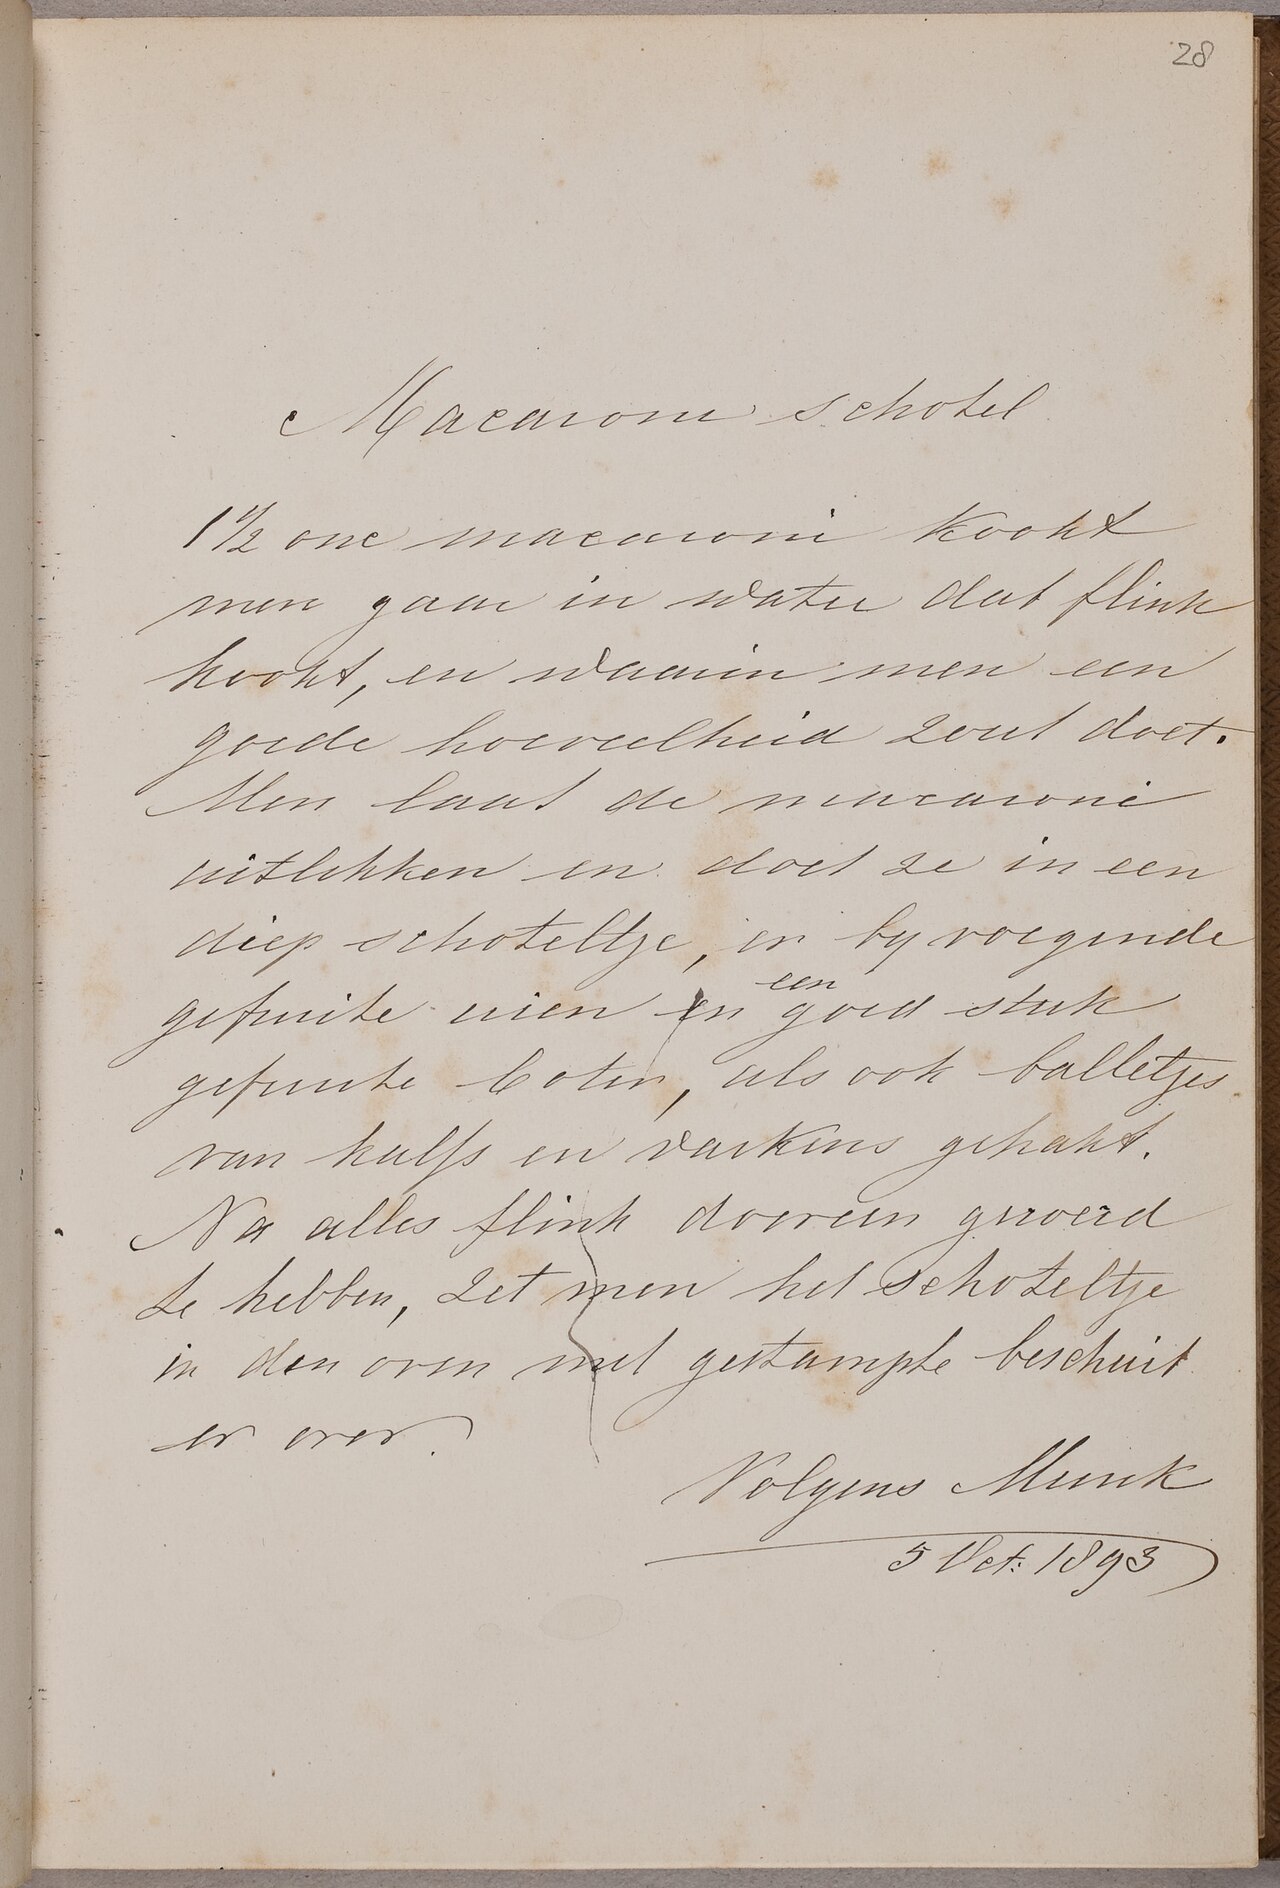 28
Macaroni schotel
1 1/2 one macaroni kookt
men gaar in water dat flink
kookt, en waarin men een
goede hoeveelheid zout doet.
Men laat de macaroni
uitlekken en doet ze in een
diep schoteltje, er by voegende
gefruite uien en een goed stuk
gefruite boter, als ook balletjes
van kalfs en varkens gehakt.
Na alles flink dooreen geroerd
te hebben, zet men het schoteltje
in den oven met gestampte beschuit
er over.
Volgens Munk
5 Oct: 1893